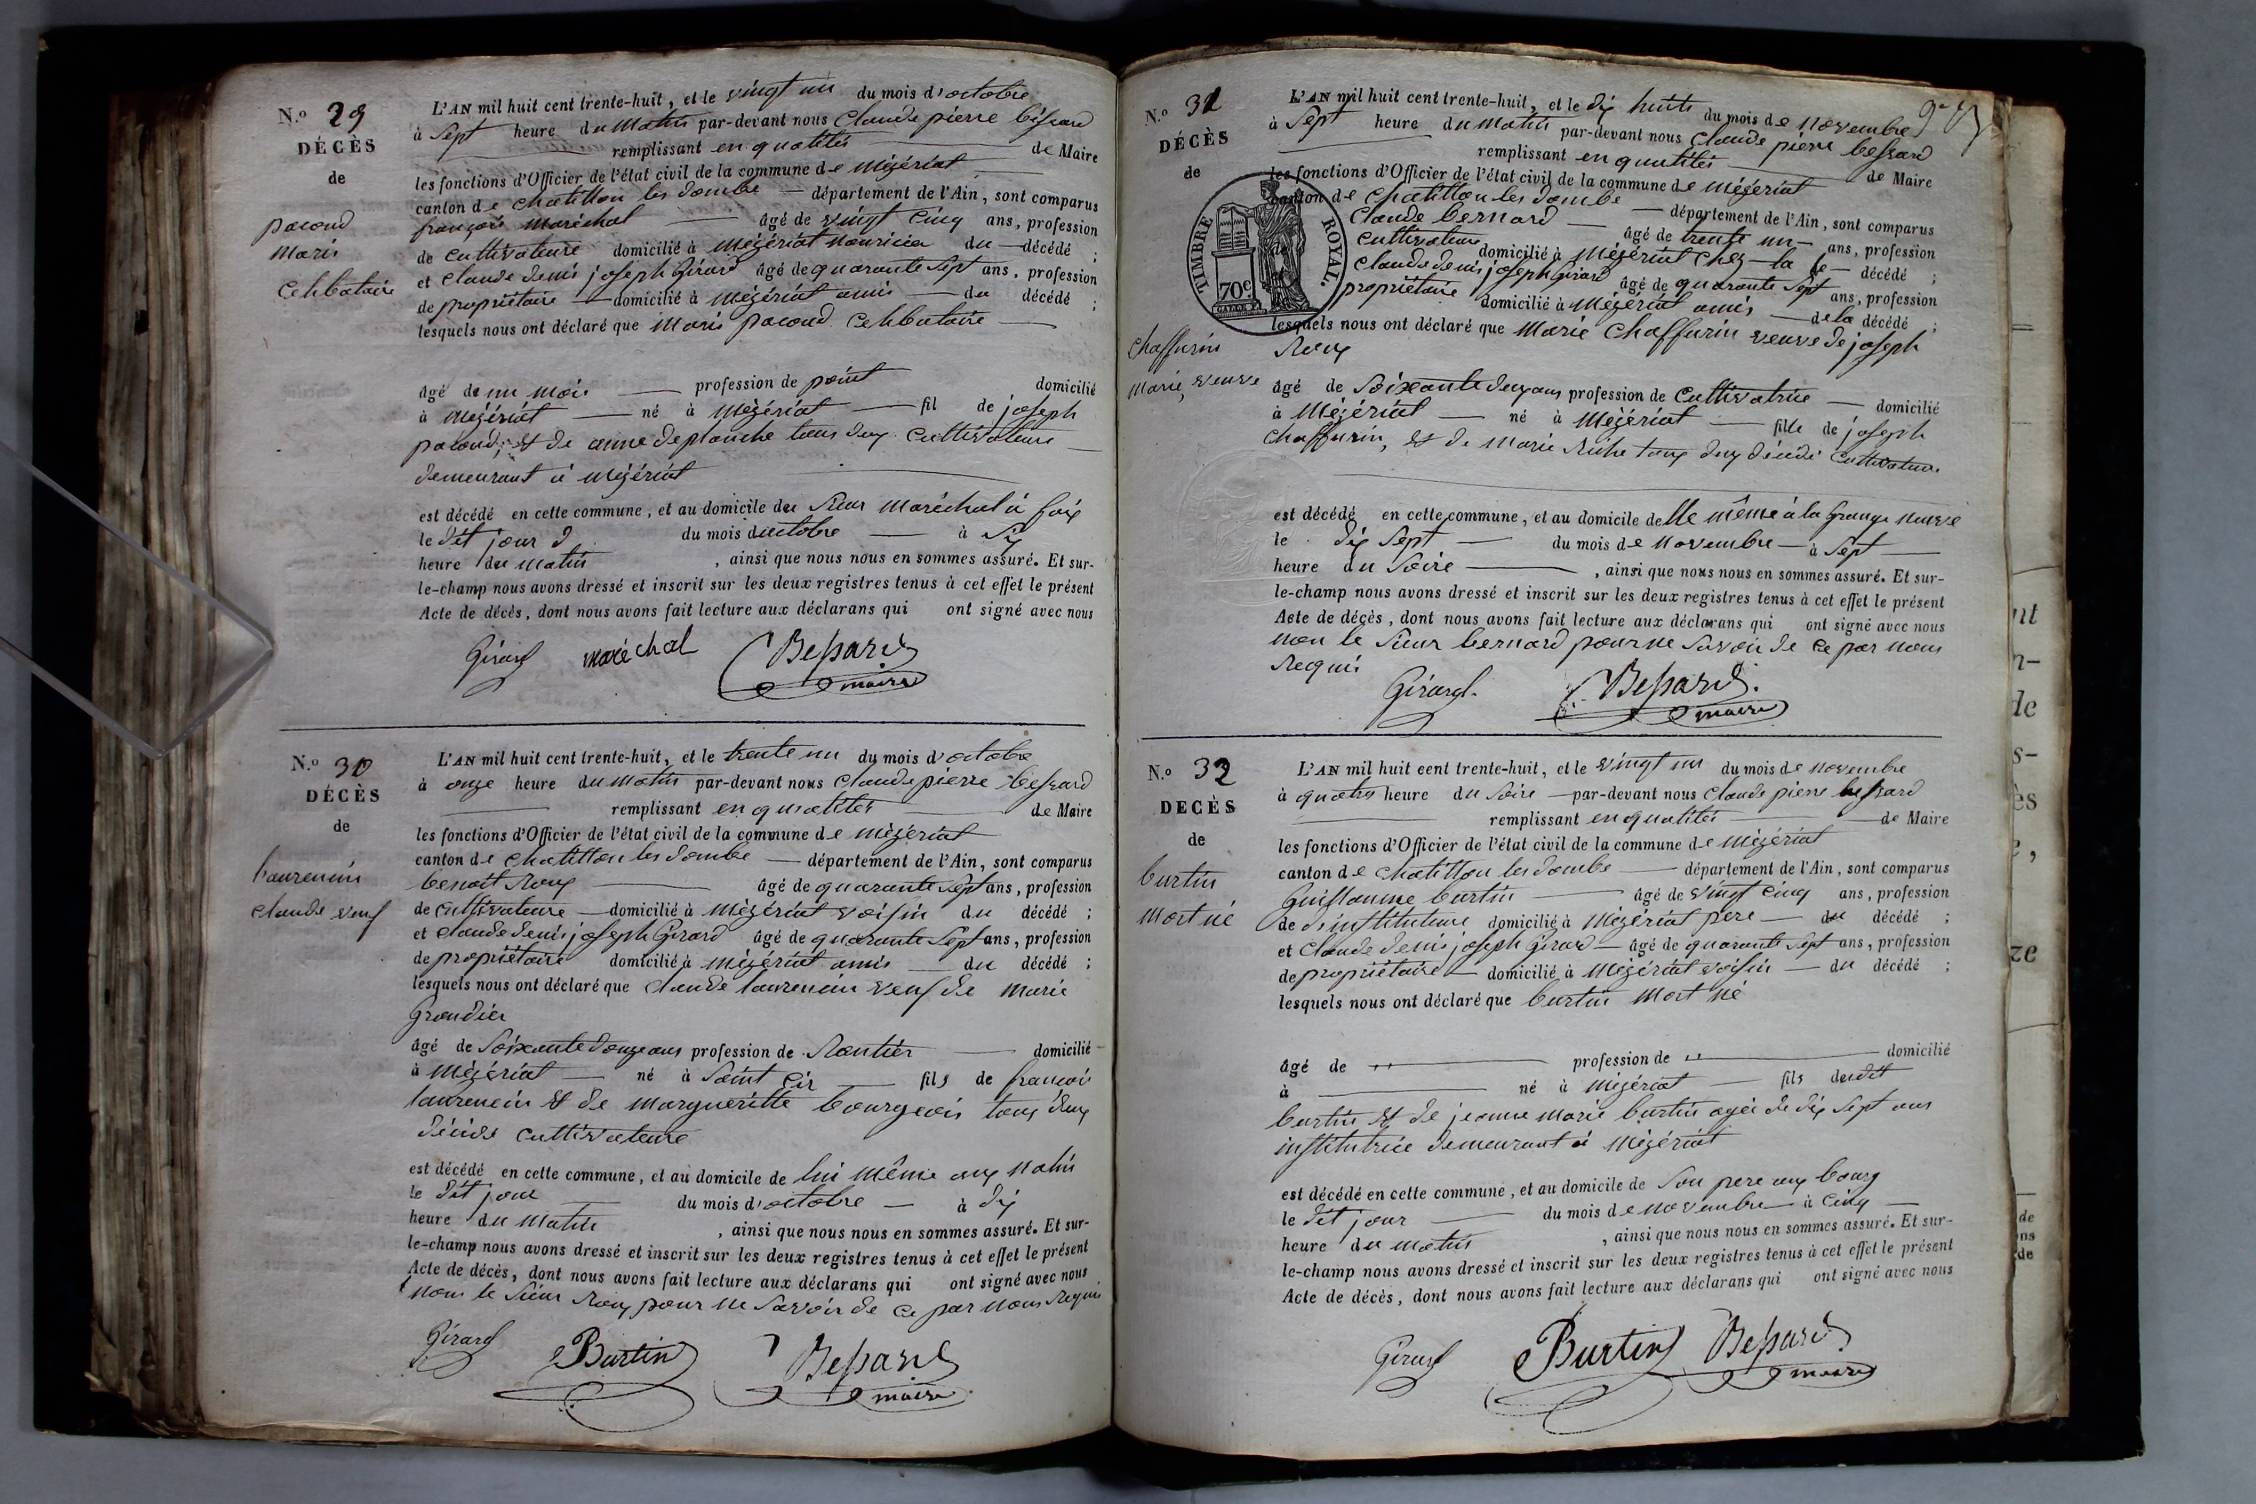 N.º 29
DÉCÈS
de
pacoud
Marie
Celibataire
L'AN mil huit cent trente-huit, et le vingt un du mois d'octobre
à Sept heure du Matin par-devant nous Claude pierre bessard
remplissant en qualités de Maire
les fonctions d'Officier de l'état civil de la commune de Mézériat
canton de Chatillon les dombe département de l'Ain, sont comparus
françois Maréchal âgé de vingt Cinq ans, profession
de Cultivateure domicilié à Mézériat nouricier du décédé ;
et Claude denis joseph Girard âgé de quarante Sept ans, profession
de propriétaire domicilié à Mézériat amis du décédé ;
lesquels nous ont déclaré que Marie pacoud Celibataire
âgé de un mois profession de point domicilié
à Mézériat né à Mézériat fil de joseph
pacoud, et de anne deplanche tous deux Cultivateure
demeurant à Mézériat
est décédé en cette commune, et au domicile du Sieur Maréchal à foix
le dit jour d du mois doctobre à Six
heure du Matin , ainsi que nous nous en sommes assuré. Et sur-
le-champ nous avons dressé et inscrit sur les deux registres tenus à cet effet le présent
Acte de décès, dont nous avons fait lecture aux déclarans qui ont signé avec nous
Girard maréchal Bessard
maire
N.º 30
DÉCÈS
de
laurencin
Claude veuf
L'AN mil huit cent trente-huit, et le trente un du mois d'octobre
à onze heure du Matin par-devant nous Claude pierre bessard
remplissant en qualités de Maire
les fonctions d'Officier de l'état civil de la commune de Mézériat
canton de Chatillon les dombe département de l'Ain, sont comparus
benoit Roux âgé de quarante Sept ans, profession
de Cultivateure domicilié à Mézériat voisin du décédé ;
et Claude denis joseph Girard âgé de quarante Sept ans, profession
de propriétaire domicilié à Mézériat amis du décédé ;
lesquels nous ont déclaré que Claude laurencin veuf de Marie
Grandier
âgé de Soixante douze ans profession de Rentier domicilié
à Mézériat né à Saint Cir fils de françois
laurencin et de Margueritte bourgeois tous deux
décidé Cultivateure
est décédé en cette commune, et au domicile de lui même aux
le dit jour du mois d'octobre à dix
heure du Matin , ainsi que nous nous en sommes assuré. Et sur-
le-champ nous avons dressé et inscrit sur les deux registres tenus à cet effet le présent
Acte de décès, dont nous avons fait lecture aux déclarans qui ont signé avec nous
non le Sieur Roux pour ne Savoir de ce par nous Requis
Girard Burtin Bessard
maire
N.º 31
DÉCÈS
de
TIMBRE ROYAL.
70c
Chaffurin
Marie, veuve
L'AN mil huit cent trente-huit, et le dix huits du mois de Novembre
à Sept heure du Matin par-devant nous Claude pierre bessard
remplissant en qualités de Maire
les fonctions d'Officier de l'état civil de la commune de Mézériat
canton de Chatillon les dombe département de l'Ain, sont comparus
Claude bernard âgé de trente un ans, profession
Cultivateure domicilié à Mézériat Chez la décédé ;
Claude denis joseph Girard âgé de quarante Sept ans, profession
propriétaire domicilié à Mézériat amis dela décédé ;
lesquels nous ont déclaré que Marie Chaffurin veuve de joseph
Roux
âgé de Soixante deux ans profession de Cultivatrice domicilié
à Mézériat né à Mézériat fille de joseph
Chaffurin, et de Marie Riche tous deux décidé Cultivateure
est décédé en cette commune, et au domicile delle même à la Grange neuve
le dix Sept du mois de Novembre à Sept
heure du Soire , ainsi que nous nous en sommes assuré. Et sur-
le-champ nous avons dressé et inscrit sur les deux registres tenus à cet effet le présent
Acte de décès, dont nous avons fait lecture aux déclarans qui ont signé avec nous
non le Sieur bernard pour ne Savoir de ce par nous
Requis
Girard. Bessard.
maire
N.º 32
DECÈS
de
burtin
Mort né
L'AN mil huit cent trente-huit, et le vingt un du mois de Novembre
à quatre heure du Soire par-devant nous Claude pierre bessard
remplissant en qualités de Maire
les fonctions d'Officier de l'état civil de la commune de Mézériat
canton de Chatillon les dombe département de l'Ain, sont comparus
Guillaume burtin âgé de vingt Cinq ans, profession
de d'instituteure domicilié à Mézériat pere du décédé ;
et Claude denis joseph Girard âgé de quarante Sept ans, profession
de propriétaire domicilié à Mézériat voisin du décédé ;
lesquels nous ont déclaré que burtin Mort né
âgé de profession de domicilié
à né à Mézériat fils dudit
burtin et de jeanne Marie burtin agée de dix Sept ans
institutrice demeurant à Mézériat
est décédé en cette commune, et au domicile de Son pere aux bourg
le dit jour du mois de Novembre à Cinq
heure du matin , ainsi que nous nous en sommes assuré. Et sur-
le-champ nous avons dressé et inscrit sur les deux registres tenus à cet effet le présent
Acte de décès, dont nous avons fait lecture aux déclarans qui ont signé avec nous
Girard Burtin Bessard
maire